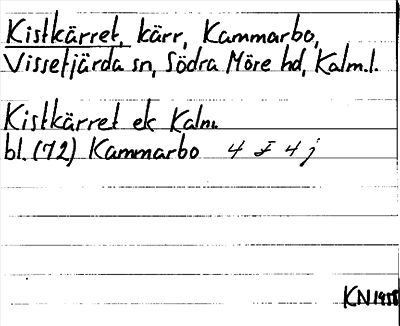 Kistkärret, kärr, Kammarbo,
Vissefjärda sn, Södra Möre hd, Kalm.l.
Kistkärret ek Kalm.
bl. (72) Kammarbo 4 I 4 j
KN 1958